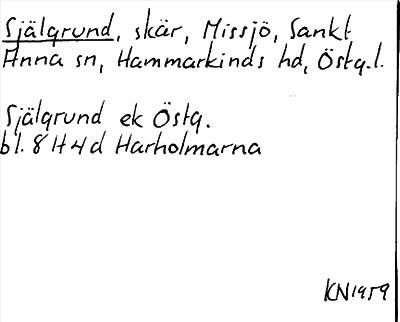 Själgrund, skär, Missjö, Sankt
Anna sn, Hammarkinds hd, Östg.l.
Själgrund ek Östg.
bl. 8 H 4 d Harholmarna
KN1959